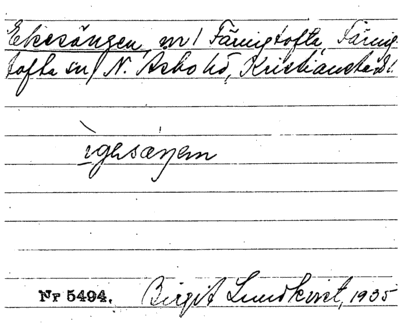 Ekesången, nr 1 Färingtofta, Färing-
tofta sn, N. Åsbo hd, Kristianstads l.
ìgəsáŋəm
Nr 5494. Birgit Lundkvist, 1935